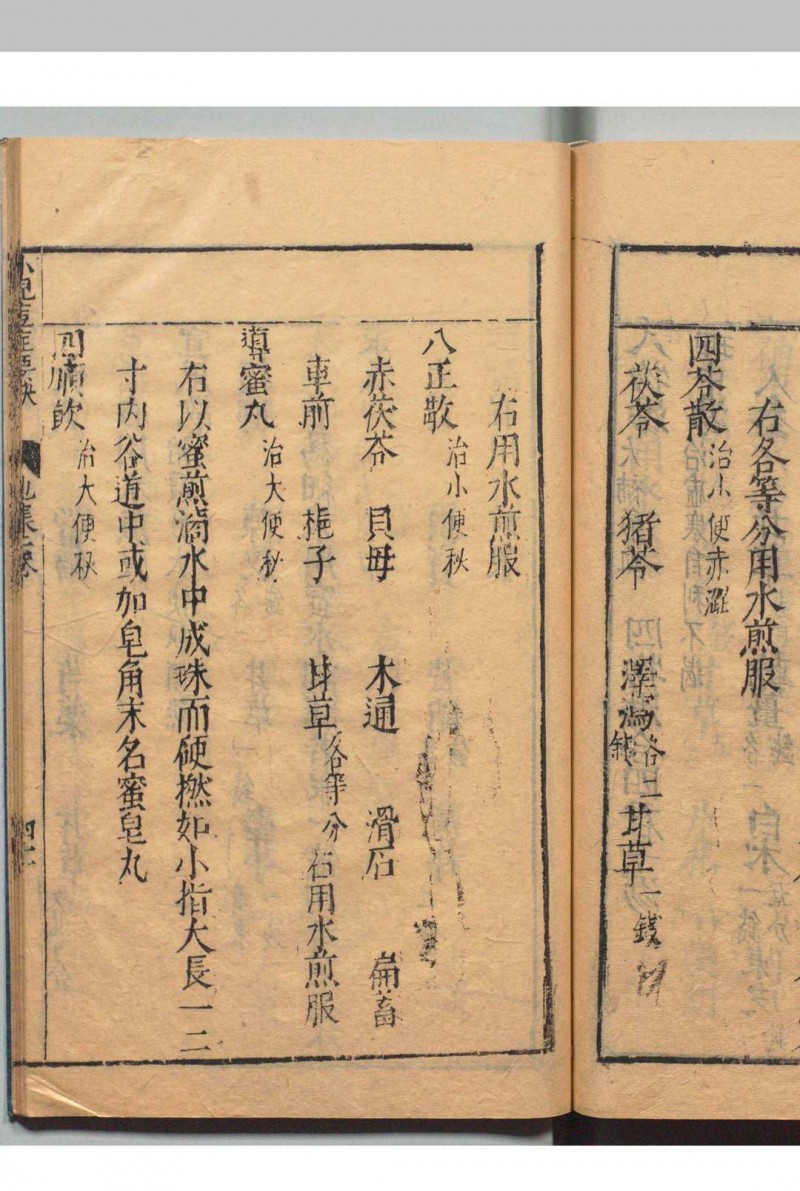 右各等分用水煎服
四苓散 治小便赤澁
茯苓 猪苓 澤瀉各二錢 甘草一錢
右用水煎服
八正散 治小便秘
赤茯苓 貝母 木通 滑石 萹蓄
車前 梔子 甘草各等分 右用水煎服
導蜜丸 治大便秘
右以蜜煎滴水中成珠而硬撚如小指大長一二
寸内谷道中或加皂角末名蜜皂丸
四順飲 治大便秘
小兒痘症要訣 地集